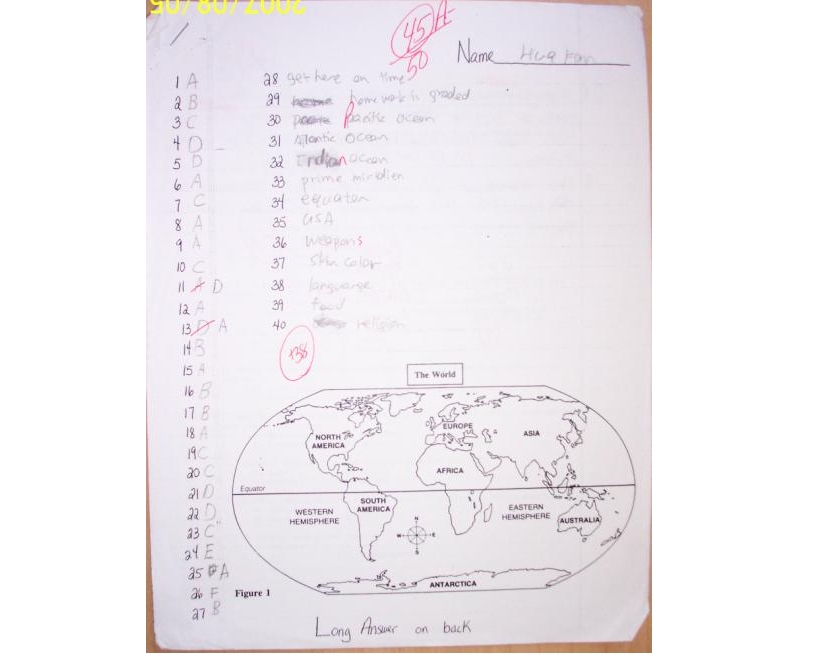 2007/08/05
45 A-
50
Name Hua Fan
1 A
2 B
3 C
4 D
5 D
6 A
7 C
8 A
9 A
10 C
11 A D
12 A
13 D A
14 B
15 A
16 B
17 B
18 A
19 C
20 C
21 D
22 D
23 C
24 E
25 A
26 F
27 B
28 get here on time
29 homework is graded
30 Pacific ocean
31 Atlantic Ocean
32 Indian Ocean
33 prime miridien
34 equaten
35 USA
36 weapons
37 skin color
38 languarge
39 food
40 religion
+38
The World
NORTH AMERICA
EUROPE
ASIA
AFRICA
Equator
SOUTH AMERICA
WESTERN HEMISPHERE
EASTERN HEMISPHERE
AUSTRALIA
N
W E
S
ANTARCTICA
Figure 1
Long Answer on back